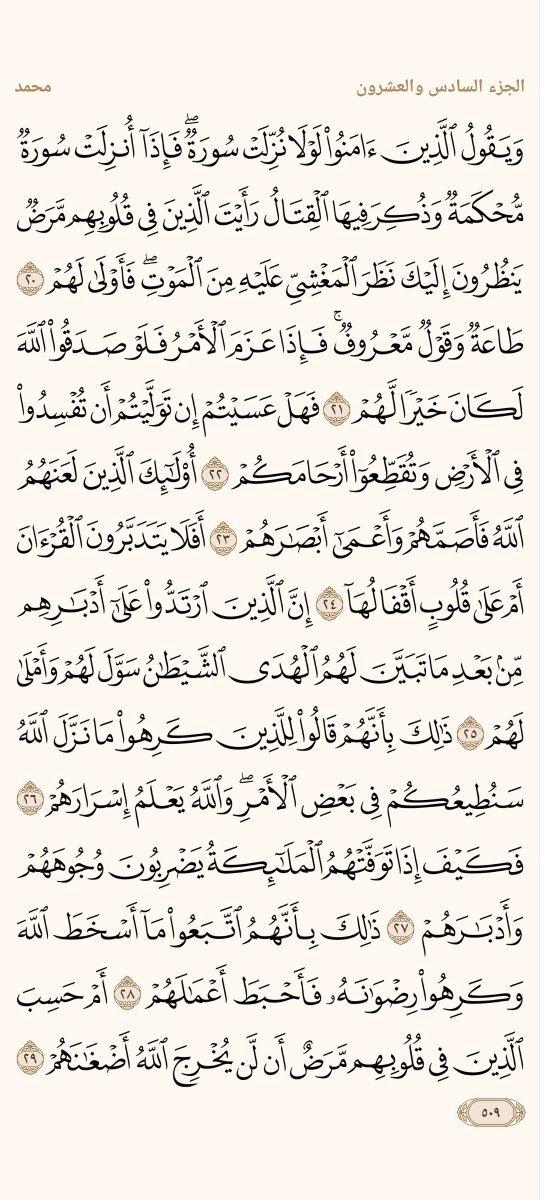 الجزء السادس والعشرون
محمد
وَيَقُولُ ٱلَّذِينَ ءَامَنُوا۟ لَوْلَا نُزِّلَتْ سُورَةٌۖ فَإِذَآ أُنزِلَتْ سُورَةٌ
مُّحْكَمَةٌ وَذُكِرَ فِيهَا ٱلْقِتَالُ رَأَيْتَ ٱلَّذِينَ فِى قُلُوبِهِم مَّرَضٌ
يَنظُرُونَ إِلَيْكَ نَظَرَ ٱلْمَغْشِىِّ عَلَيْهِ مِنَ ٱلْمَوْتِۖ فَأَوْلَىٰ لَهُمْ ٢٠
طَاعَةٌ وَقَوْلٌ مَّعْرُوفٌۚ فَإِذَا عَزَمَ ٱلْأَمْرُ فَلَوْ صَدَقُوا۟ ٱللَّهَ
لَكَانَ خَيْرًا لَّهُمْ ٢١ فَهَلْ عَسَيْتُمْ إِن تَوَلَّيْتُمْ أَن تُفْسِدُوا۟
فِى ٱلْأَرْضِ وَتُقَطِّعُوٓا۟ أَرْحَامَكُمْ ٢٢ أُو۟لَٰٓئِكَ ٱلَّذِينَ لَعَنَهُمُ
ٱللَّهُ فَأَصَمَّهُمْ وَأَعْمَىٰٓ أَبْصَٰرَهُمْ ٢٣ أَفَلَا يَتَدَبَّرُونَ ٱلْقُرْءَانَ
أَمْ عَلَىٰ قُلُوبٍ أَقْفَالُهَآ ٢٤ إِنَّ ٱلَّذِينَ ٱرْتَدُّوا۟ عَلَىٰٓ أَدْبَٰرِهِم
مِّنۢ بَعْدِ مَا تَبَيَّنَ لَهُمُ ٱلْهُدَى ٱلشَّيْطَٰنُ سَوَّلَ لَهُمْ وَأَمْلَىٰ
لَهُمْ ٢٥ ذَٰلِكَ بِأَنَّهُمْ قَالُوا۟ لِلَّذِينَ كَرِهُوا۟ مَا نَزَّلَ ٱللَّهُ
سَنُطِيعُكُمْ فِى بَعْضِ ٱلْأَمْرِۖ وَٱللَّهُ يَعْلَمُ إِسْرَارَهُمْ ٢٦
فَكَيْفَ إِذَا تَوَفَّتْهُمُ ٱلْمَلَٰٓئِكَةُ يَضْرِبُونَ وُجُوهَهُمْ
وَأَدْبَٰرَهُمْ ٢٧ ذَٰلِكَ بِأَنَّهُمُ ٱتَّبَعُوا۟ مَآ أَسْخَطَ ٱللَّهَ
وَكَرِهُوا۟ رِضْوَٰنَهُۥ فَأَحْبَطَ أَعْمَٰلَهُمْ ٢٨ أَمْ حَسِبَ
ٱلَّذِينَ فِى قُلُوبِهِم مَّرَضٌ أَن لَّن يُخْرِجَ ٱللَّهُ أَضْغَٰنَهُمْ ٢٩
٥٠٩